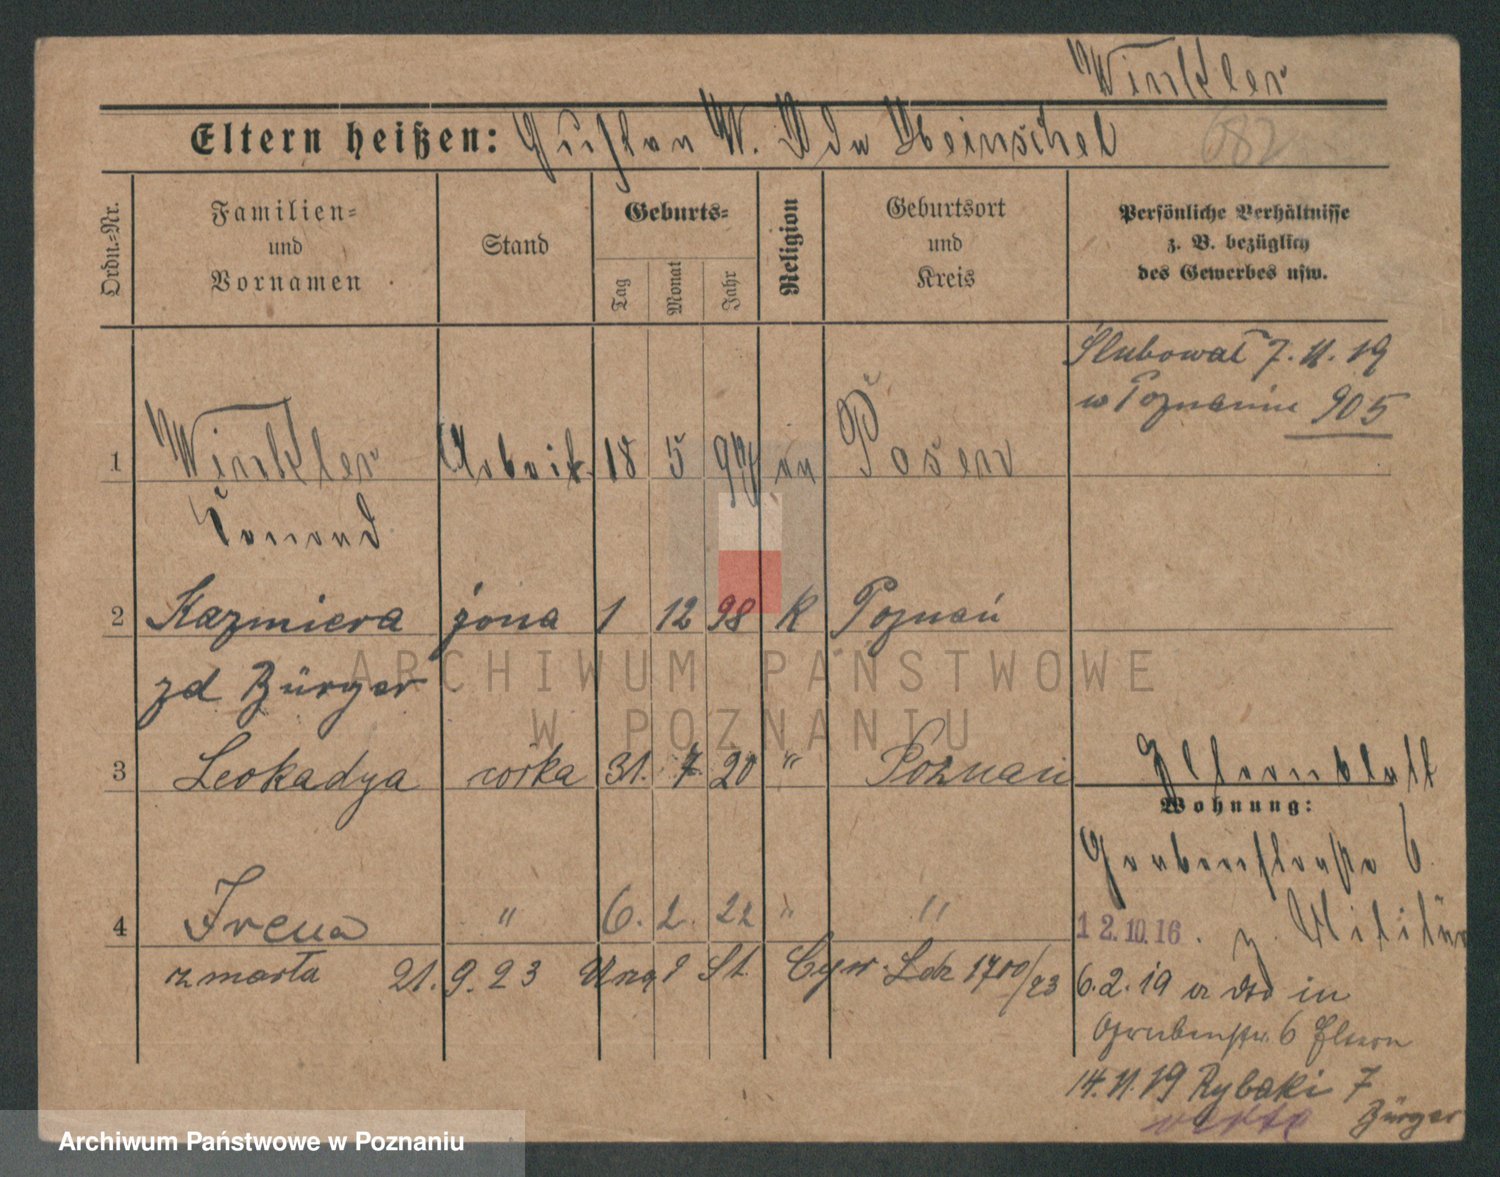 Winkler
Eltern heißen: Gustav W. Ida Heinschel
682
Ordn.-Nr.
Familien-
und
Vornamen
Stand
Geburts-
Tag
Monat
Jahr
Religion
Geburtsort
und
Kreis
Persönliche Verhältnisse
z. B. bezüglich
des Gewerbes usw.
Ślubował 7.11.19
w Poznaniu 905
1 Winkler Arbeit. 18 5 97 Posen
Konrad
2 Kazmiera żona 1 12 98 K Poznań
zd Bürger
3 Leokadya córka 31. 7 20 " Poznań
Elternblatt
Wohnung:
Grabenstraße 6.
4 Irena " 6. 2. 22 " "
12.10.16. z. Militär
zmarła 21.9.23 Urzą St. Cyw. Ldz 1700/23
6.2.19 in
Grabenstr. 6 Eltern
14.11.19 Rybaki 7
Bürger
ARCHIWUM PAŃSTWOWE
W POZNANIU
Archiwum Państwowe w Poznaniu